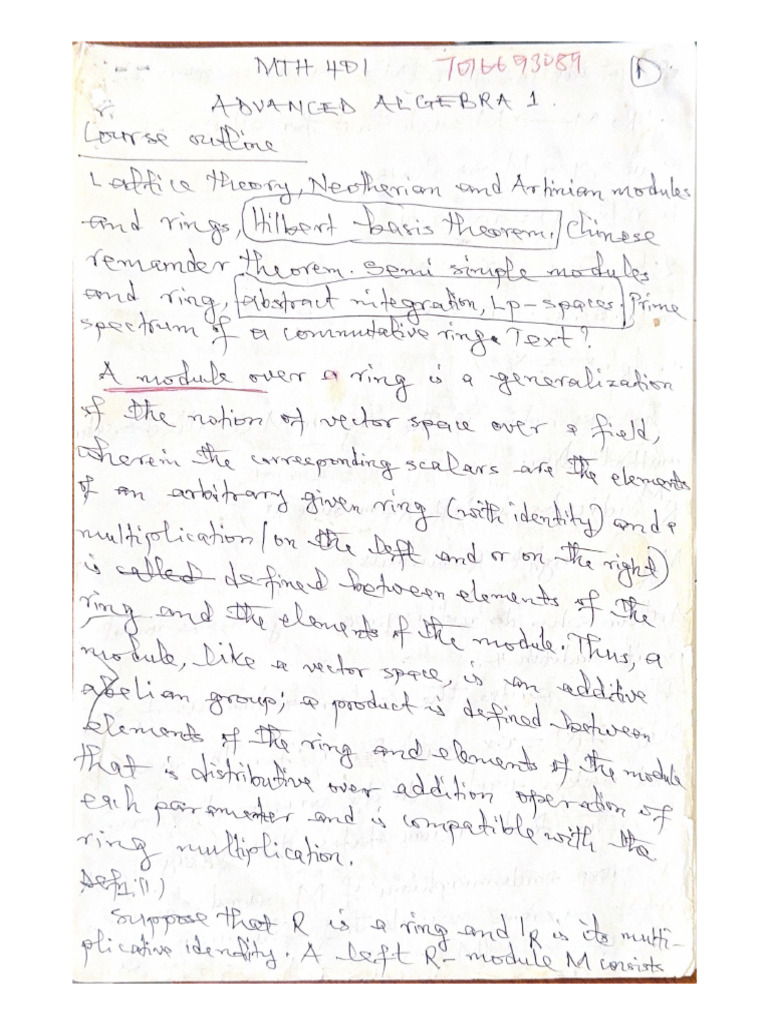 MTH 401 7016693089 1
ADVANCED ALGEBRA 1.
Course outline
Lattice theory, Neotherian and Artinian modules
and rings, Hilbert basis theorem. Chinese
remainder theorem. Semi simple modules
and ring, abstract integration, Lp-spaces. Prime
spectrum of a commutative ring. Text?
A module over a ring is a generalization
of the notion of vector space over a field,
wherein the corresponding scalars are the elements
of an arbitrary given ring (with identity) and a
multiplication (on the left and or on the right)
is called defined between elements of the
ring and the elements of the module. Thus, a
module, like a vector space, is an additive
abelian group; a product is defined between
elements of the ring and elements of the module
that is distributive over addition operation of
each parameter and is compatible with the
ring multiplication.
Defn 1.1)
Suppose that R is a ring and 1R is its multi-
plicative identity. A left R-module M consists